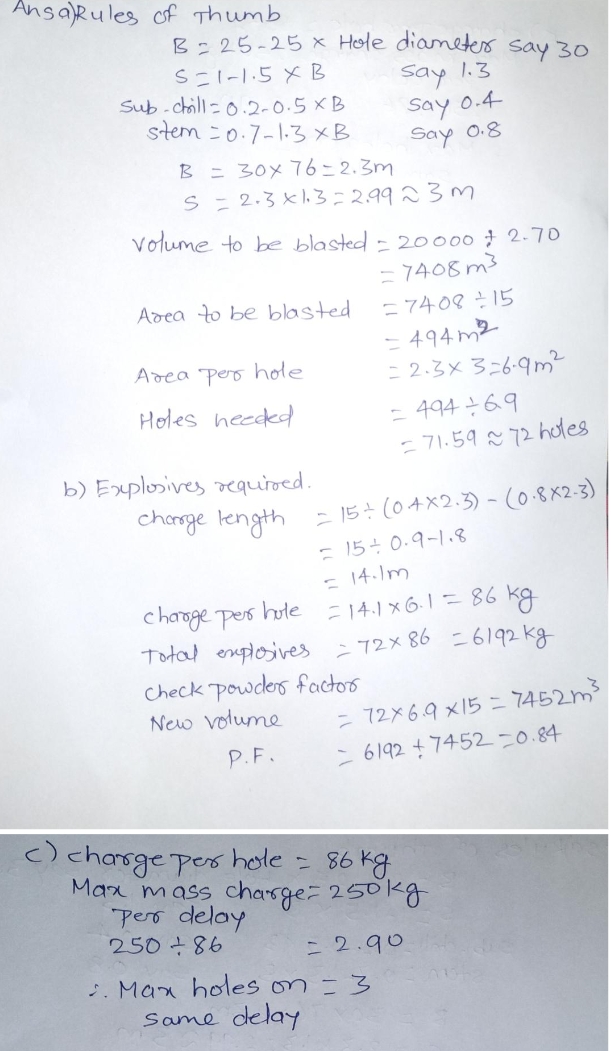 Ans a) Rules of Thumb
B = 25-25 x Hole diameter say 30
S = 1-1.5 x B say 1.3
Sub-chill = 0.2-0.5 x B say 0.4
stem = 0.7-1.3 x B say 0.8
B = 30 x 76 = 2.3m
S = 2.3 x 1.3 = 2.99 ≈ 3m
Volume to be blasted = 20000 ÷ 2.70
= 7408 m³
Area to be blasted = 7408 ÷ 15
= 494 m²
Area per hole = 2.3 x 3 = 6.9 m²
Holes needed = 494 ÷ 6.9
= 71.59 ≈ 72 holes
b) Explosives required.
charge length = 15 ÷ (0.4 x 2.3) - (0.8 x 2.3)
= 15 ÷ 0.9 - 1.8
= 14.1m
charge per hole = 14.1 x 6.1 = 86 kg
Total explosives = 72 x 86 = 6192 kg
Check powder factor
New volume = 72 x 6.9 x 15 = 7452 m³
P.F. = 6192 ÷ 7452 = 0.84
c) charge per hole = 86 kg
Max mass charge = 250 kg
per delay
250 ÷ 86 = 2.90
∴ Max holes on = 3
same delay